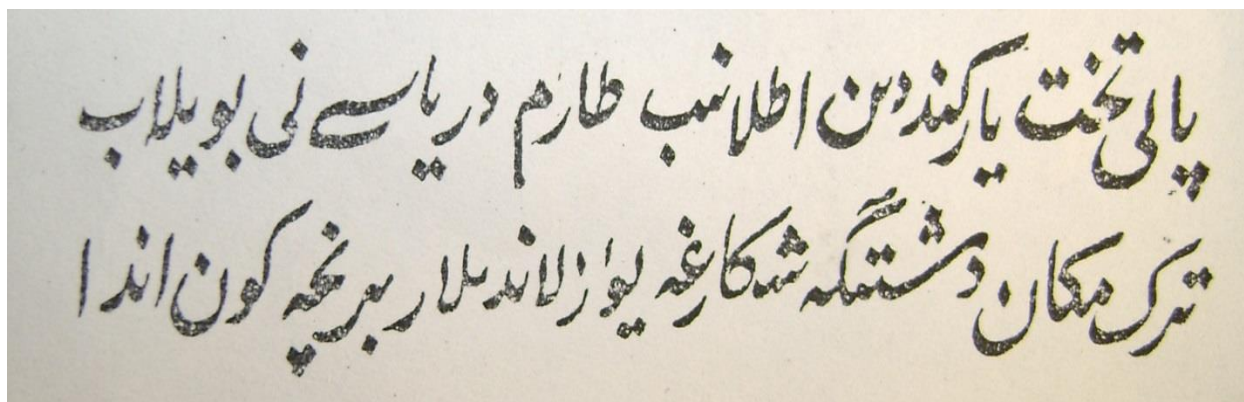 پائی تخت یارکنددین اطلانیب طارم دریاسے نی بویلاب
ترک مکان دشتیگه شکارغه یوزلاندیلار بیر نچه کون اندا